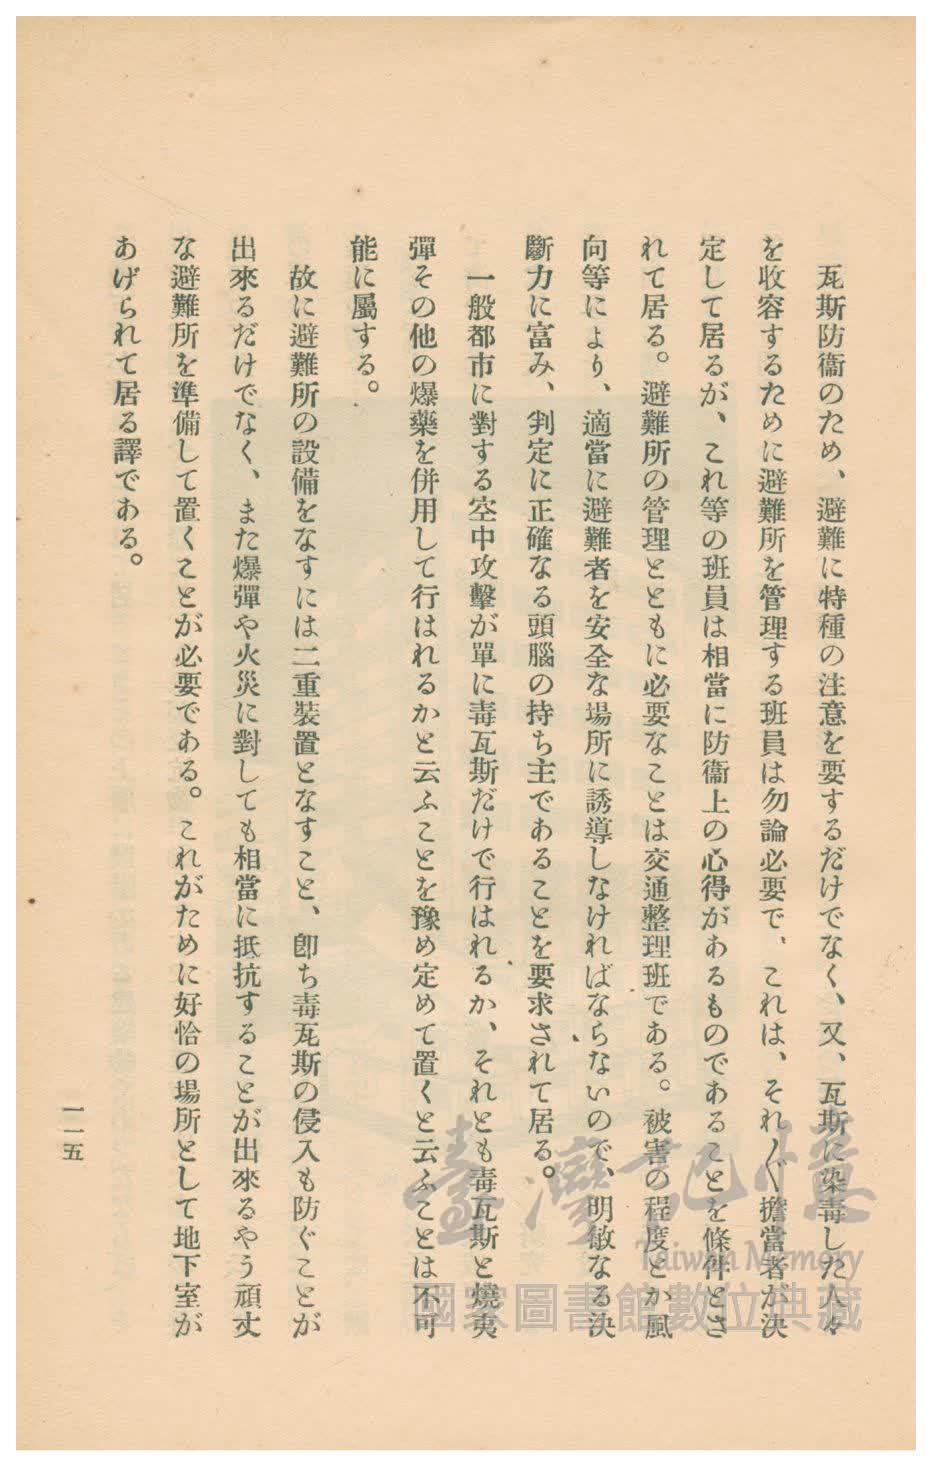 瓦斯防衞のため、避難に特種の注意を要するだけでなく、又、瓦斯に染毒した人々
を收容するために避難所を管理する班員は勿論必要で、これは、それ〲擔當者が決
定して居るが、これ等の班員は相當に防衞上の心得があるものであることを條件とさ
れて居る。避難所の管理とともに必要なことは交通整理班である。被害の程度とか風
向等により、適當に避難者を安全な場所に誘導しなければならないので、明敏なる決
斷力に富み、判定に正確なる頭腦の持ち主であることを要求されて居る。
一般都市に對する空中攻擊が單に毒瓦斯だけで行はれるか、それとも毒瓦斯と燒夷
彈その他の爆藥を併用して行はれるかと云ふことを豫め定めて置くと云ふことは不可
能に屬する。
故に避難所の設備をなすには二重裝置となすこと、卽ち毒瓦斯の侵入も防ぐことが
出來るだけでなく、また爆彈や火災に對しても相當に抵抗することが出來るやう頑丈
な避難所を準備して置くことが必要である。これがために好恰の場所として地下室が
あげられて居る譯である。
一一五
臺灣記憶
Taiwan Memory
國家圖書館數位典藏